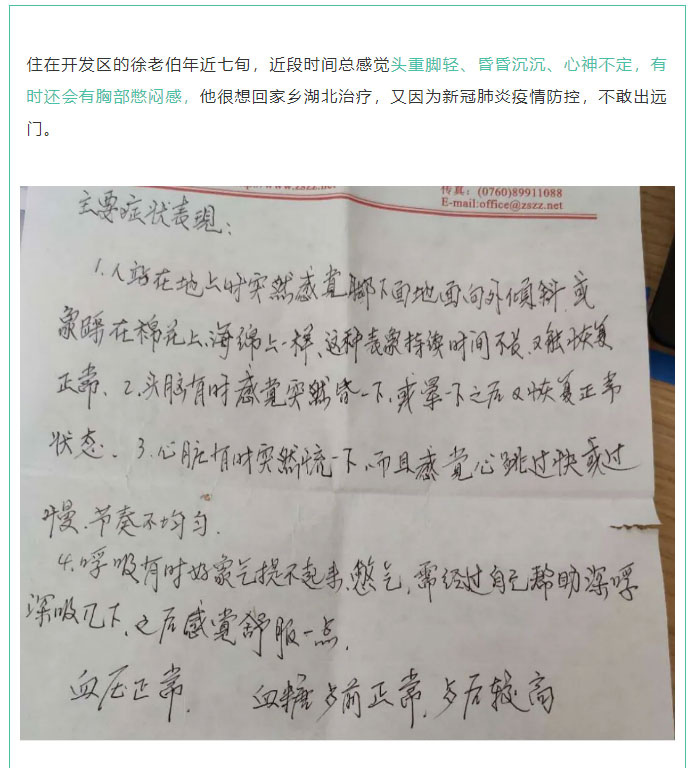 住在开发区的徐老伯年近七旬，近段时间总感觉头重脚轻、昏昏沉沉、心神不定，有
时还会有胸部憋闷感，他很想回家乡湖北治疗，又因为新冠肺炎疫情防控，不敢出远
门。
传真：(0760)89911088
E-mail:office@zszz.net
主要症状表現：
1.人站在地上时突然感覚脚下面地面向外傾斜.或
象踩在棉花上、海绵上一样、这种表象持续时间不长、又能恢复
正常、2.头脑有时感覚突然昏一下,或晕一下之后又恢复正常
状态、3.心脏有时突然慌一下,而且感觉心跳过快或过
慢、节奏不均匀.
4.呼吸有时好象气提不起来、憋气,需经过自己帮助深呼
深吸几下、之后感覚舒服一点.
血压正常. 血糖占前正常,占后较高